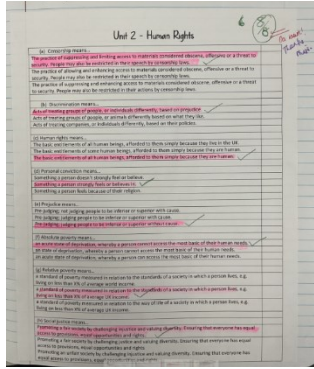 6
8
8
Unit 2 - Human Rights
(a) Censorship means...
The practice of suppressing and limiting access to materials considered obscene, offensive or a threat to
security. People may also be restricted in their speech by censorship laws.
The practice of allowing and enhancing access to materials considered obscene, offensive or a threat to
security. People may also be restricted in their speech by censorship laws.
The practice of suppressing and enhancing access to materials considered obscene, offensive or a threat
to security. People may also be restricted in their actions by censorship laws.
(b) Discrimination means...
Acts of treating groups of people, or individuals differently, based on prejudice.
Acts of treating groups of people, or animals differently based on what they like.
Acts of treating companies, or individuals differently, based on their policies.
(c) Human rights means...
The basic entitlements of all human beings, afforded to them simply because they live in the UK.
The basic entitlements of some human beings, afforded to them simply because they are human.
The basic entitlements of all human beings, afforded to them simply because they are human.
(d) Personal Conviction means...
Something a person doesn't strongly feel or believe.
Something a person strongly feels or believes in.
Something a person feels because of their religion.
(e) Prejudice means...
Pre-judging; not judging people to be inferior or superior with cause.
Pre-judging; judging people to be inferior or superior with cause.
Pre-judging; judging people to be inferior or superior without cause.
(f) Absolute poverty means...
An acute state of deprivation, whereby a person cannot access the most basic of their human needs.
an state of deprivation, whereby a person cannot access the most basic of their human needs.
an acute state of deprivation, whereby a person can access the most basic of their human needs.
(g) Relative poverty means...
a standard of poverty measured in relation to the standards of a society in which a person lives, e.g.
living on less than X% of average world income.
a standard of poverty measured in relation to the standards of a society in which a person lives, e.g.
living on less than X% of average UK income.
a standard of poverty measured in relation to the way of life of a society in which a person lives, e.g.
living on less than X% of average UK income.
(h) Social justice means...
Promoting a fair society by challenging injustice and valuing diversity. Ensuring that everyone has equal
access to provisions, equal opportunities and rights.
Promoting a fair society by challenging justice and valuing diversity. Ensuring that everyone has equal
access to provisions, equal opportunities and rights.
Promoting an unfair society by challenging injustice and valuing diversity. Ensuring that everyone has
access to provisions, equal